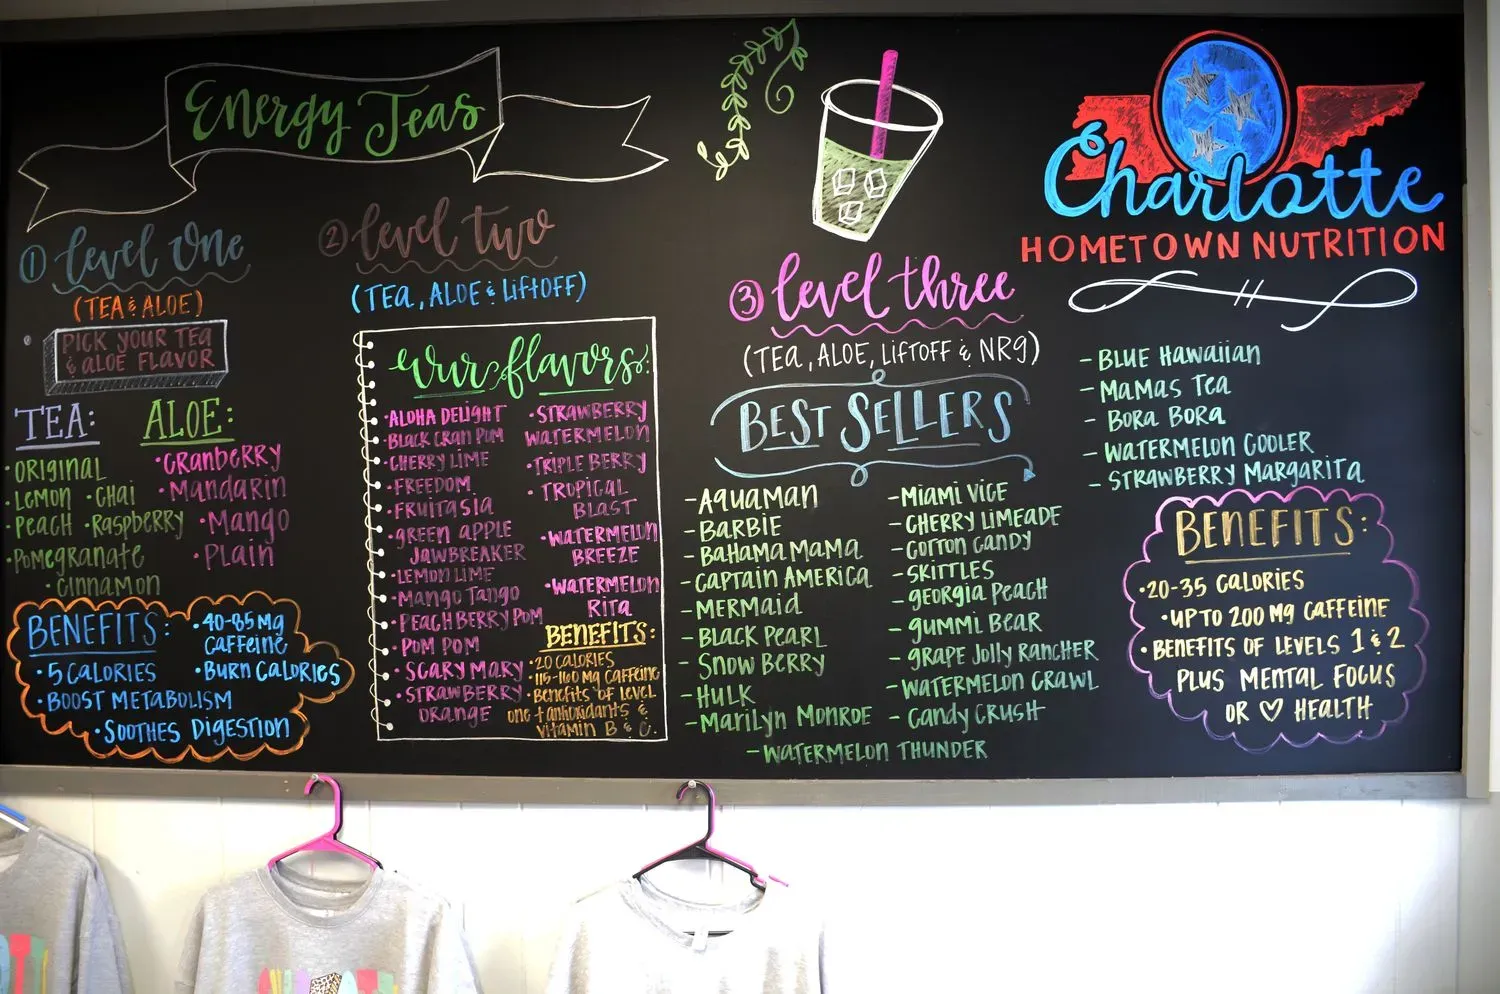 Energy Teas
1 level one
(TEA & ALOE)
PICK YOUR TEA
& ALOE FLAVOR
TEA:
·ORIGINAL
·LEMON ·CHAI
·PEACH ·RASPBERRY
·POMEGRANATE
·CINNAMON
ALOE:
·CRANBERRY
·MANDARIN
·MANGO
·PLAIN
BENEFITS:
·5 CALORIES
·BOOST METABOLISM
·SOOTHES DIGESTION
·40-85 MG
CAFFEINE
·BURN CALORIES
2 level two
(TEA, ALOE & LIFTOFF)
our flavors:
·ALOHA DELIGHT
·BLACK CRAN POM
·CHERRY LIME
·FREEDOM
·FRUITASIA
·GREEN APPLE
JAWBREAKER
·LEMON LIME
·MANGO TANGO
·PEACH BERRY POM
·POM POM
·SCARY MARY
·STRAWBERRY
ORANGE
·STRAWBERRY
WATERMELON
·TRIPLE BERRY
·TROPICAL
BLAST
·WATERMELON
BREEZE
·WATERMELON
RITA
BENEFITS:
·20 CALORIES
·115-160 MG CAFFEINE
·BENEFITS OF LEVEL
ONE + ANTIOXIDANTS &
VITAMIN B & C.
3 level three
(TEA, ALOE, LIFTOFF & NRG)
BEST SELLERS
-AQUAMAN
-BARBIE
-BAHAMA MAMA
-CAPTAIN AMERICA
-MERMAID
-BLACK PEARL
-SNOW BERRY
-HULK
-MARILYN MONROE
-MIAMI VICE
-CHERRY LIMEADE
-COTTON CANDY
-SKITTLES
-GEORGIA PEACH
-GUMMI BEAR
-GRAPE JOLLY RANCHER
-WATERMELON CRAWL
-CANDY CRUSH
-WATERMELON THUNDER
Charlotte
HOMETOWN NUTRITION
-BLUE HAWAIIAN
-MAMAS TEA
-BORA BORA
-WATERMELON COOLER
-STRAWBERRY MARGARITA
BENEFITS:
·20-35 CALORIES
·UP TO 200 MG CAFFEINE
·BENEFITS OF LEVELS 1 & 2
PLUS MENTAL FOCUS
OR ♡ HEALTH